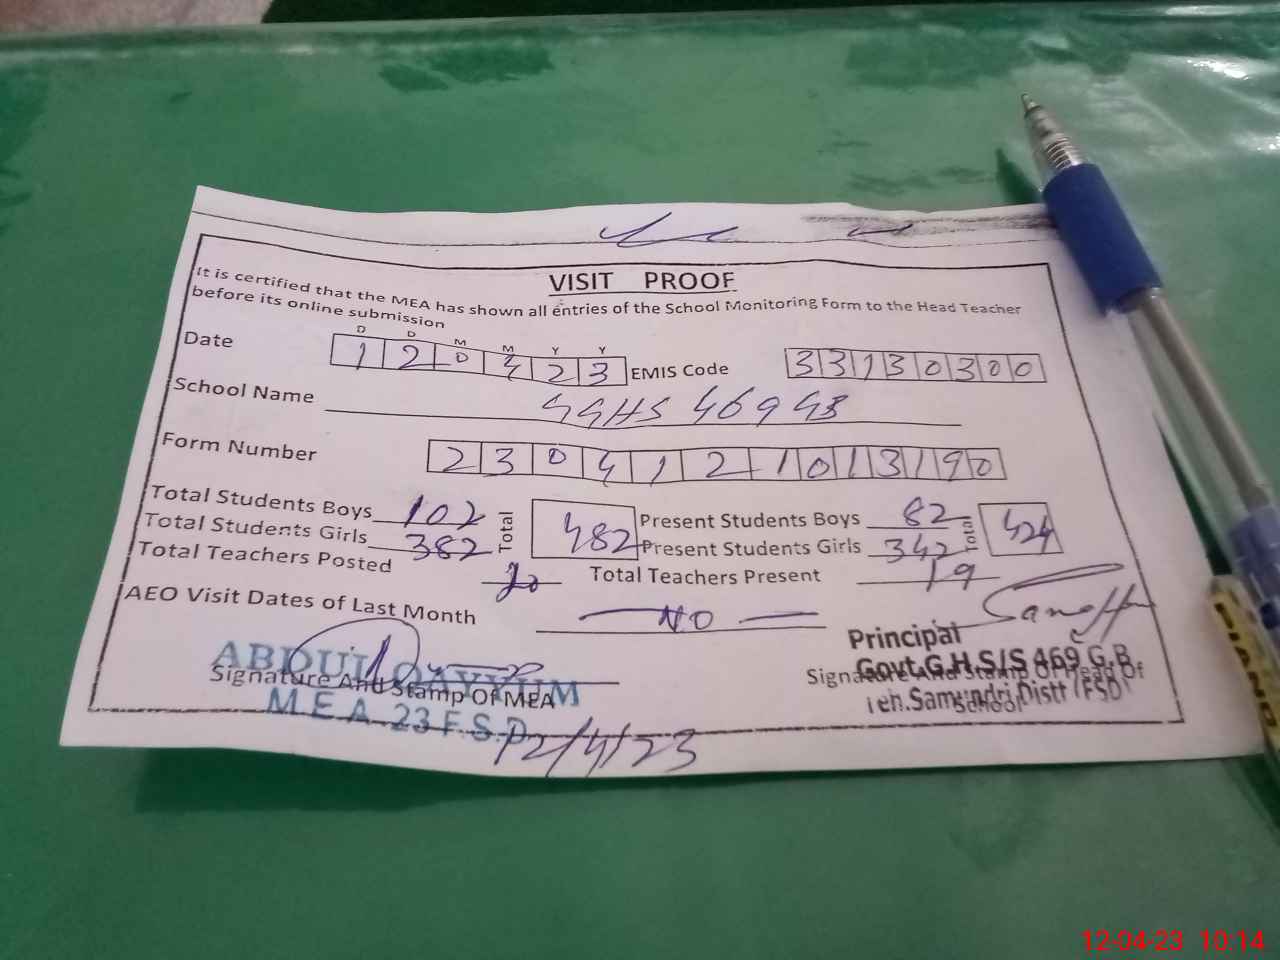 VISIT PROOF
It is certified that the MEA has shown all entries of the School Monitoring Form to the Head Teacher
before its online submission
D D M M Y Y
Date 1 2 0 4 2 3 EMIS Code 3 3 1 3 0 3 0 0
School Name GGHS 469 GB
Form Number 2 3 0 4 1 2 1 0 1 3 1 9 0
Total Students Boys 102 Total 482 Present Students Boys 82 Total 424
Total Students Girls 382 Present Students Girls 342
Total Teachers Posted 20 Total Teachers Present 19
AEO Visit Dates of Last Month — NO —
ABDUL QAYYUM
Signature And Stamp Of MEA
M E A 23 F.S.D
12/4/23
Principal
Govt.G.H.S/S 469 G.B
Signature And Stamp Of Head Of
Teh.Samundri Distt (FSD)
School
PIANO
12-04-23 10:14